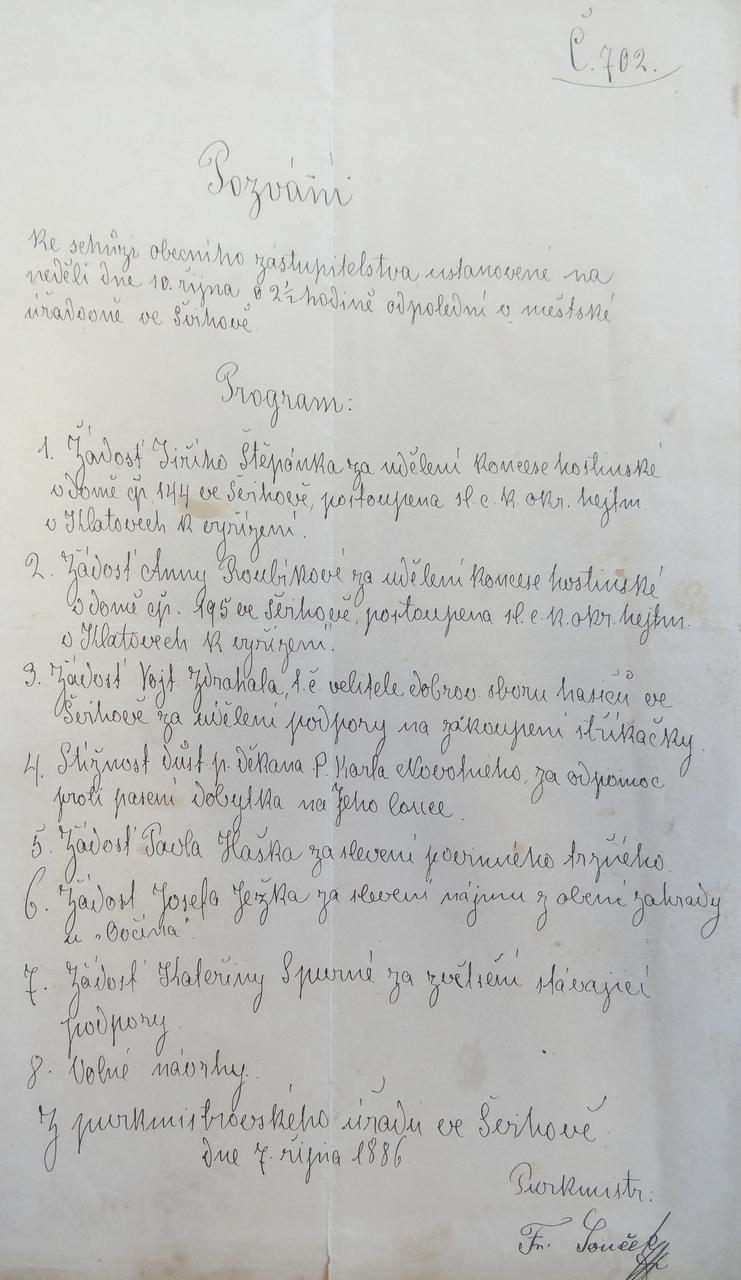 Č. 702.
Pozvání
ke schůzi obecního zástupitelstva ustanovené na
neděli dne 10. října o 2½ hodině odpolední v městské
úřadovně ve Švihově.
Program:
1. Žádosť Jiřího Štěpánka za udělení koncese hostinské
v domě čp. 144 ve Švihově, postoupena sl. c. k. okr. hejtm.
v Klatovech k vyřízení.
2. Žádosť Anny Roubíkové za udělení koncese hostinské
v domě čp. 195 ve Švihově, postoupena sl. c. k. okr. hejtm.
v Klatovech k vyřízení.
3. Žádosť Vojt. Zdrahala, t. č. velitele dobrov. sboru hasičů ve
Švihově za udělení podpory na zakoupení stříkačky.
4. Stížnost důst. p. děkana P. Karla Novotného, za odpomoc
proti pasení dobytka na Jeho louce.
5. Žádosť Pavla Haška za slevení povinného tržného.
6. Žádost Josefa Ježka za slevení nájmu z obení zahrady
u „Ovčína".
7. Žádosť Kateřiny Spurné za zvětšení stávající
podpory.
8. Volné návrhy.
Z purkmistrovského úřadu ve Švihově
dne 7. října 1886.
Purkmistr:
Fr. Souček